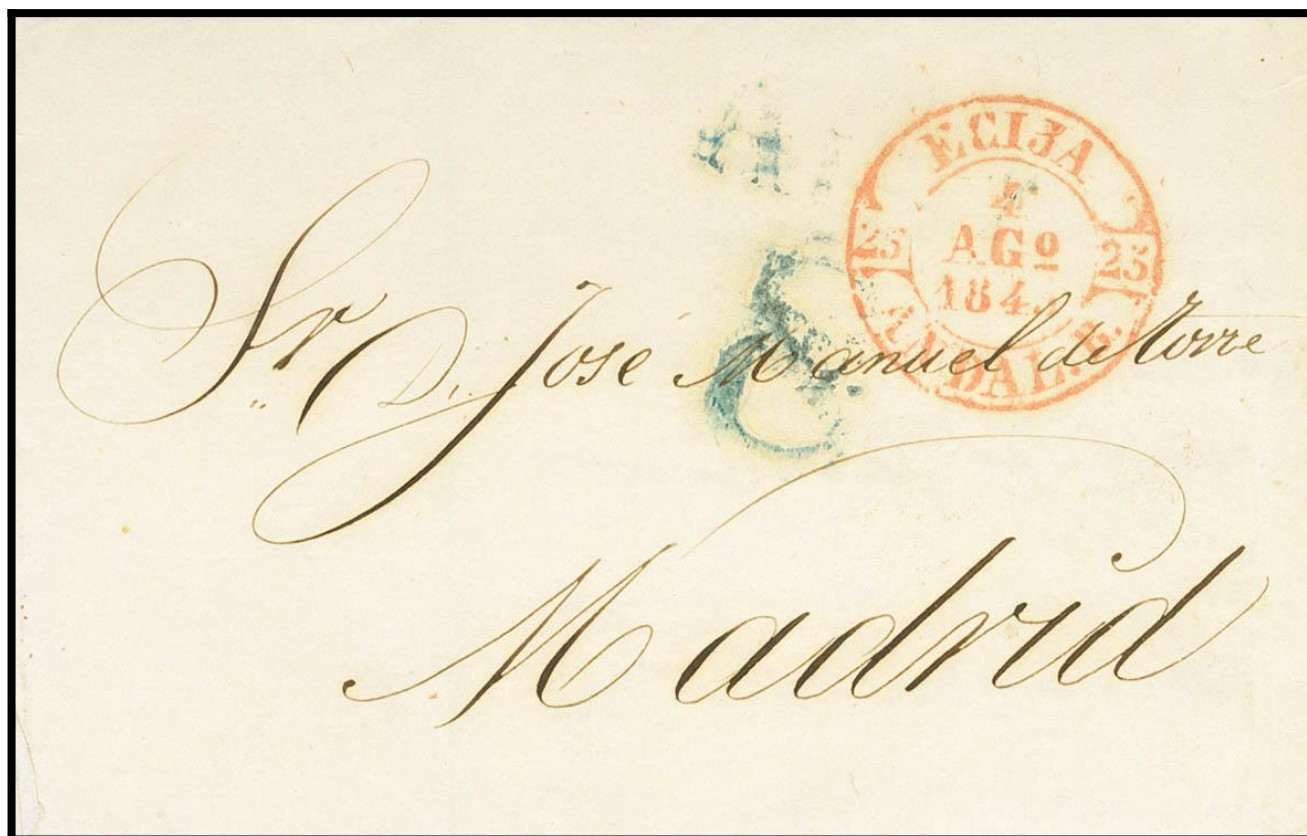 ECIJA
4
AGº
184
25 25
ANDAL. B.
Sr. D. José Manuel de Torre
Madrid